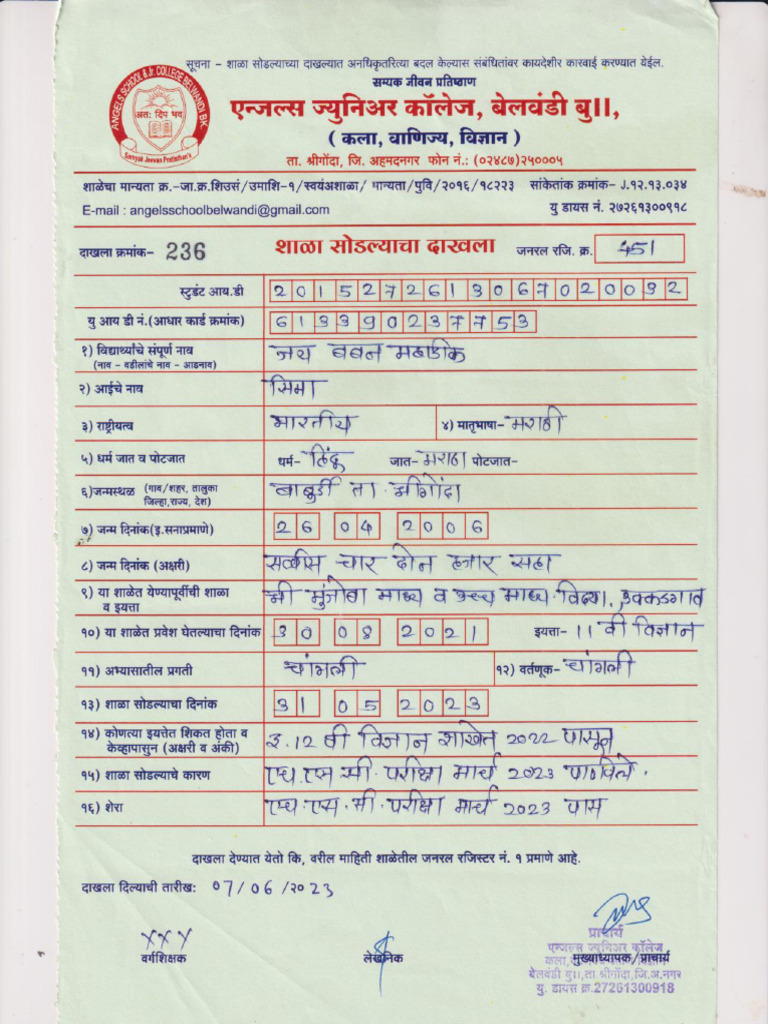 सूचना - शाळा सोडल्याच्या दाखल्यात अनधिकृतरित्या बदल केल्यास संबंधितांवर कायदेशीर कारवाई करण्यात येईल.
सम्यक जीवन प्रतिष्ठाण
ANGELS SCHOOL & Jr. COLLEGE BELWANDI BK.
अतः दिप भव
Samyak Jeevan Pratisthan's
एन्जल्स ज्युनिअर कॉलेज, बेलवंडी बु॥,
( कला, वाणिज्य, विज्ञान )
ता. श्रीगोंदा, जि. अहमदनगर फोन नं.: (०२४८७)२५०००५
शाळेचा मान्यता क्र.-जा.क्र.शिउसं/उमाशि-१/स्वयंअशाळा/ मान्यता/पुवि/२०१६/१८२२३ सांकेतांक क्रमांक- J.१२.१३.०३४
E-mail : angelsschoolbelwandi@gmail.com यु डायस नं. २७२६१३००९१८
दाखला क्रमांक- 236 शाळा सोडल्याचा दाखला जनरल रजि. क्र. 451
स्टुडंट आय.डी 2015272613067020032
यु आय डी नं.(आधार कार्ड क्रमांक) 613390237753
१) विद्यार्थ्यांचे संपूर्ण नाव जय बबन महाडीक
(नाव - वडीलांचे नाव - आडनाव)
२) आईचे नाव सिमा
३) राष्ट्रीयत्व भारतीय ४) मातृभाषा- मराठी
५) धर्म जात व पोटजात धर्म- हिंदु जात- मराठा पोटजात-
६)जन्मस्थळ (गाव/शहर, तालुका बाबुर्डी ता. श्रीगोंदा
जिल्हा,राज्य, देश)
७) जन्म दिनांक(इ.सनाप्रमाणे) 26 04 2006
८) जन्म दिनांक (अक्षरी) सव्वीस चार दोन हजार सहा
९) या शाळेत येण्यापूर्वीची शाळा श्री मुंजोबा माध्य व उच्च माध्य. विद्या. उक्कडगाव
व इयत्ता
१०) या शाळेत प्रवेश घेतल्याचा दिनांक 30 08 2021 इयत्ता- 11 वी विज्ञान
११) अभ्यासातील प्रगती चांगली १२) वर्तणूक- चांगली
१३) शाळा सोडल्याचा दिनांक 31 05 2023
१४) कोणत्या इयत्तेत शिकत होता व इ. 12 वी विज्ञान शाखेत 2022 पासून
केव्हापासुन (अक्षरी व अंकी)
१५) शाळा सोडल्याचे कारण एच.एस.सी. परीक्षा मार्च 2023
१६) शेरा एच.एस.सी. परीक्षा मार्च 2023 पास
दाखला देण्यात येतो कि, वरील माहिती शाळेतील जनरल रजिस्टर नं. १ प्रमाणे आहे.
दाखला दिल्याची तारीख: 07/06/2023
xxx
वर्गशिक्षक लेखनिक मुख्याध्यापक/प्राचार्य
प्राचार्य
एन्जल्स ज्युनिअर कॉलेज
बेलवंडी बु॥,ता.श्रीगोंदा,जि.अ.नगर
यु. डायस क्र.27261300918